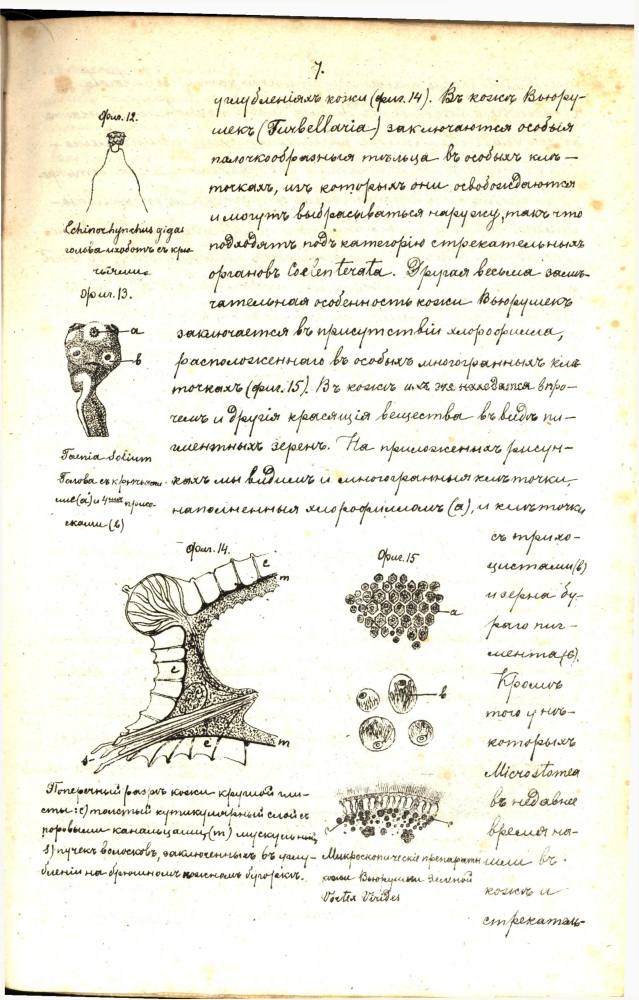 7.
углубленіяхъ кожи (фиг. 14). Въ кожѣ Вьюру-
шекъ (Turbellaria) заключаются особыя
палочкообразныя тѣльца въ особыхъ клѣ-
точкахъ, изъ которыхъ они освобождаются
и могутъ выбрасываться наружу, такъ что
подходятъ подъ категорію стрекательныхъ
органовъ Coelenterata. Другая весьма замѣ-
чательная особенность кожи Вьюрушекъ
заключается въ присутствіи хлорофилла,
расположеннаго въ особыхъ многогранныхъ клѣ
точкахъ (фиг. 15). Въ кожѣ ихъ же находятся впро-
чемъ и другія красящія вещества въ видѣ пи-
гментныхъ зеренъ. На приложенныхъ рисун-
кахъ мы видимъ и многогранныя клѣточки,
наполненныя хлорофилломъ (а), и клѣточки
съ трихо-
цистами (в)
и зерна бу-
раго пиг-
мента (б).
Кромѣ
того у нѣ-
которыхъ
Microstomea
въ недавнее
время на-
шли въ
кожѣ и
стрекатель-
Фиг. 12.
Echinorhynchus gigas
голова хоботъ съ крю
чьями
Фиг. 13.
а
в
Taenia Solium
Голова съ крючьями
(а) и 4мя присо-
сками (в)
Фиг. 14
c
m
c
c
m
s
Поперечный разрѣзъ кожи круглой гли-
сты: c) толстый кутикулярный слой съ
поровыми канальцами, (m) мускульный,
s) пучекъ волосковъ, заключенныхъ въ углу-
бленіи на брюшномъ кожномъ бугоркѣ.
Фиг. 15
а
в
Микроскопическіе препараты
кожи Вьюрушки зеленой
Vortex Virides